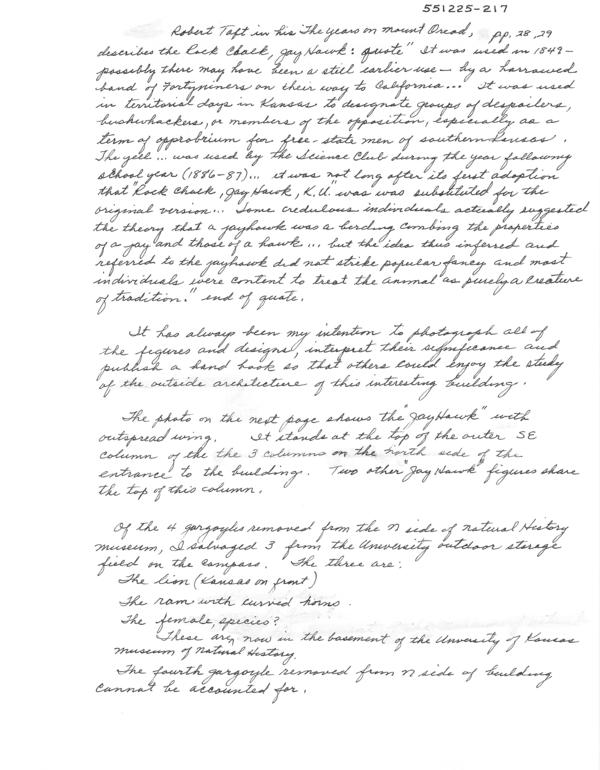 551225-217
Robert Taft in his The Years on Mount Oread, pp. 28, 29
describes the Rock Chalk, Jay Hawk: quote "It was used in 1849-
possibly there may have been a still earlier use - by a harrowed
band of Fortyniners on their way to California... It was used
in territorial days in Kansas to designate groups of despoilers,
bushwhackers, or members of the opposition, especially as a
term of opprobrium for free-state men of southern Kansas.
The yell... was used by the Science Club during the year following
school year (1886-87)... it was not long after its first adoption
that "Rock Chalk, Jay Hawk, K.U." was was substituted for the
original version... Some credulous individuals actually suggested
the theory that a jayhawk was a bird combing the properties
of a jay and those of a hawk... but the idea thus inferred and
referred to the jayhawk did not strike popular fancy and most
individuals were content to treat the animal "as purely a creature
of tradition." end of quote.
It has always been my intention to photograph all of
the figures and designs, interpret their significance and
publish a hand book so that others could enjoy the study
of the outside architecture of this interesting building.
The photo on the next page shows the "Jay Hawk" with
outspread wing. It stands at the top of the outer SE
column of the the 3 columns on the north side of the
entrance to the building. Two other "Jay Hawk" figures share
the top of this column.
Of the 4 gargoyles removed from the N side of Natural History
museum, I salvaged 3 from the University outdoor storage
field on the campass. The three are:
The lion (Kansas on front)
The ram with curved horns.
The female, species?
These are now in the basement of the University of Kansas
Museum of Natural History.
The fourth gargoyle removed from N side of building
cannot be accounted for.